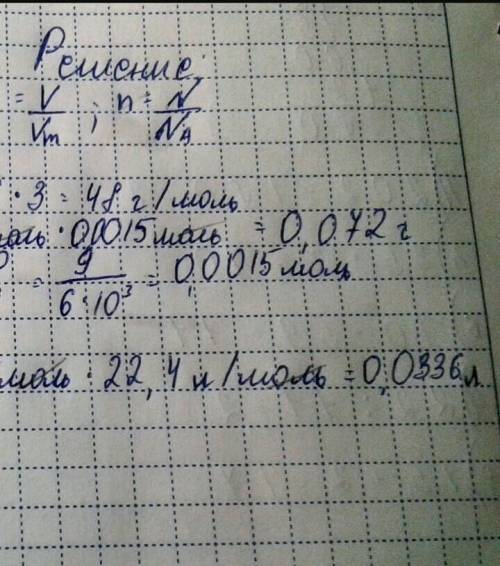 Решение:
= V/Vm ; n = N/NA
· 3 = 48 г/моль
моль · 0,0015 моль = 0,072 г
= 9/6·10³ = 0,0015 моль
моль · 22,4 л/моль = 0,0336 л